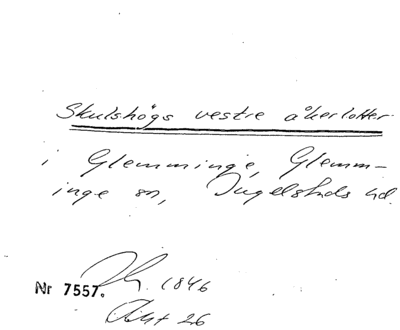 Skulshögs vestre åkerlotter
i Glemminge, Glemm-
inge sn, Ingelstads hd.
Nr 7557. 1846
Akt 26